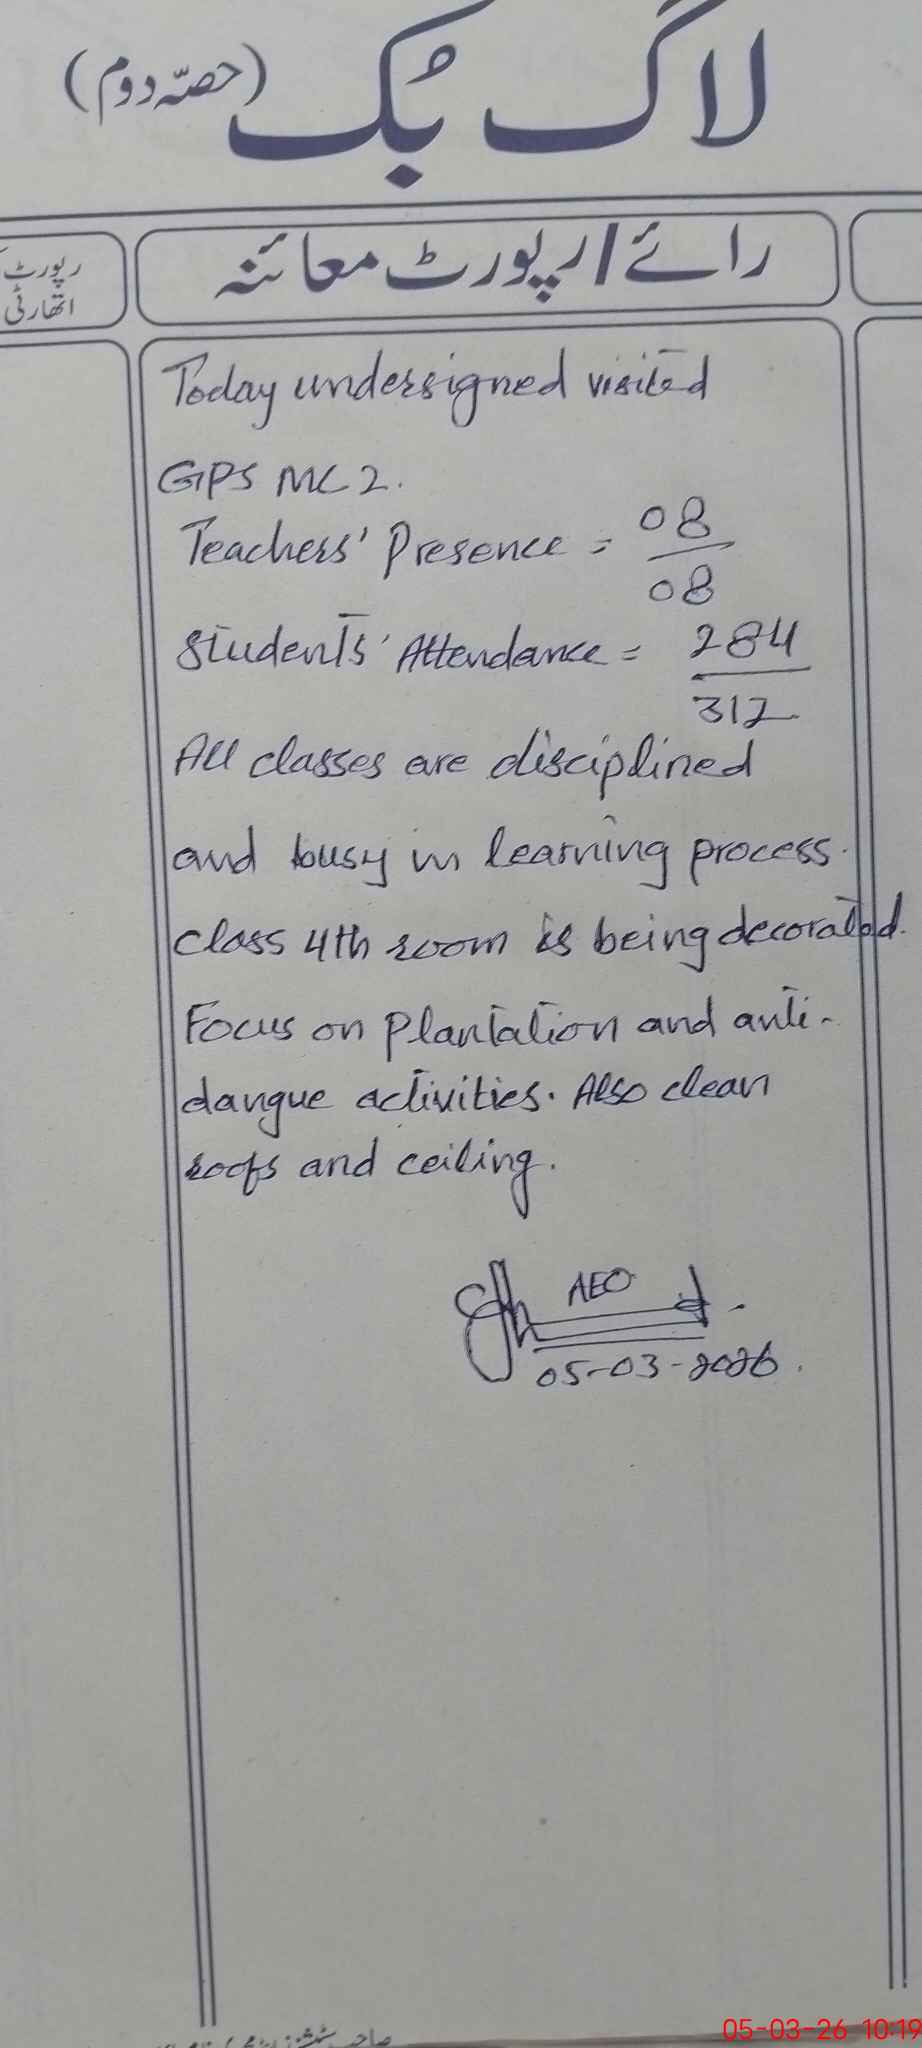 لاگ بُک (حصّہ دوم)
رائے/رپورٹ معائنہ
رپورٹ
اتھارٹی
Today undersigned visited
GPS MC 2.
Teachers' Presence = 08/08
Students' Attendance = 284/312
All classes are disciplined
and busy in learning process.
Class 4th room is being decorated.
Focus on Plantation and anti-
dangue activities. Also clean
roofs and ceiling.
AEO
05-03-2026.
صاحب
05-03-26 10:19